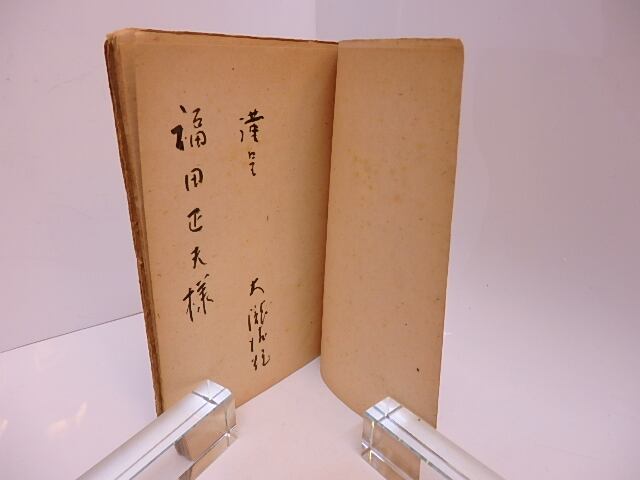 謹呈 大瀧
福田正夫様